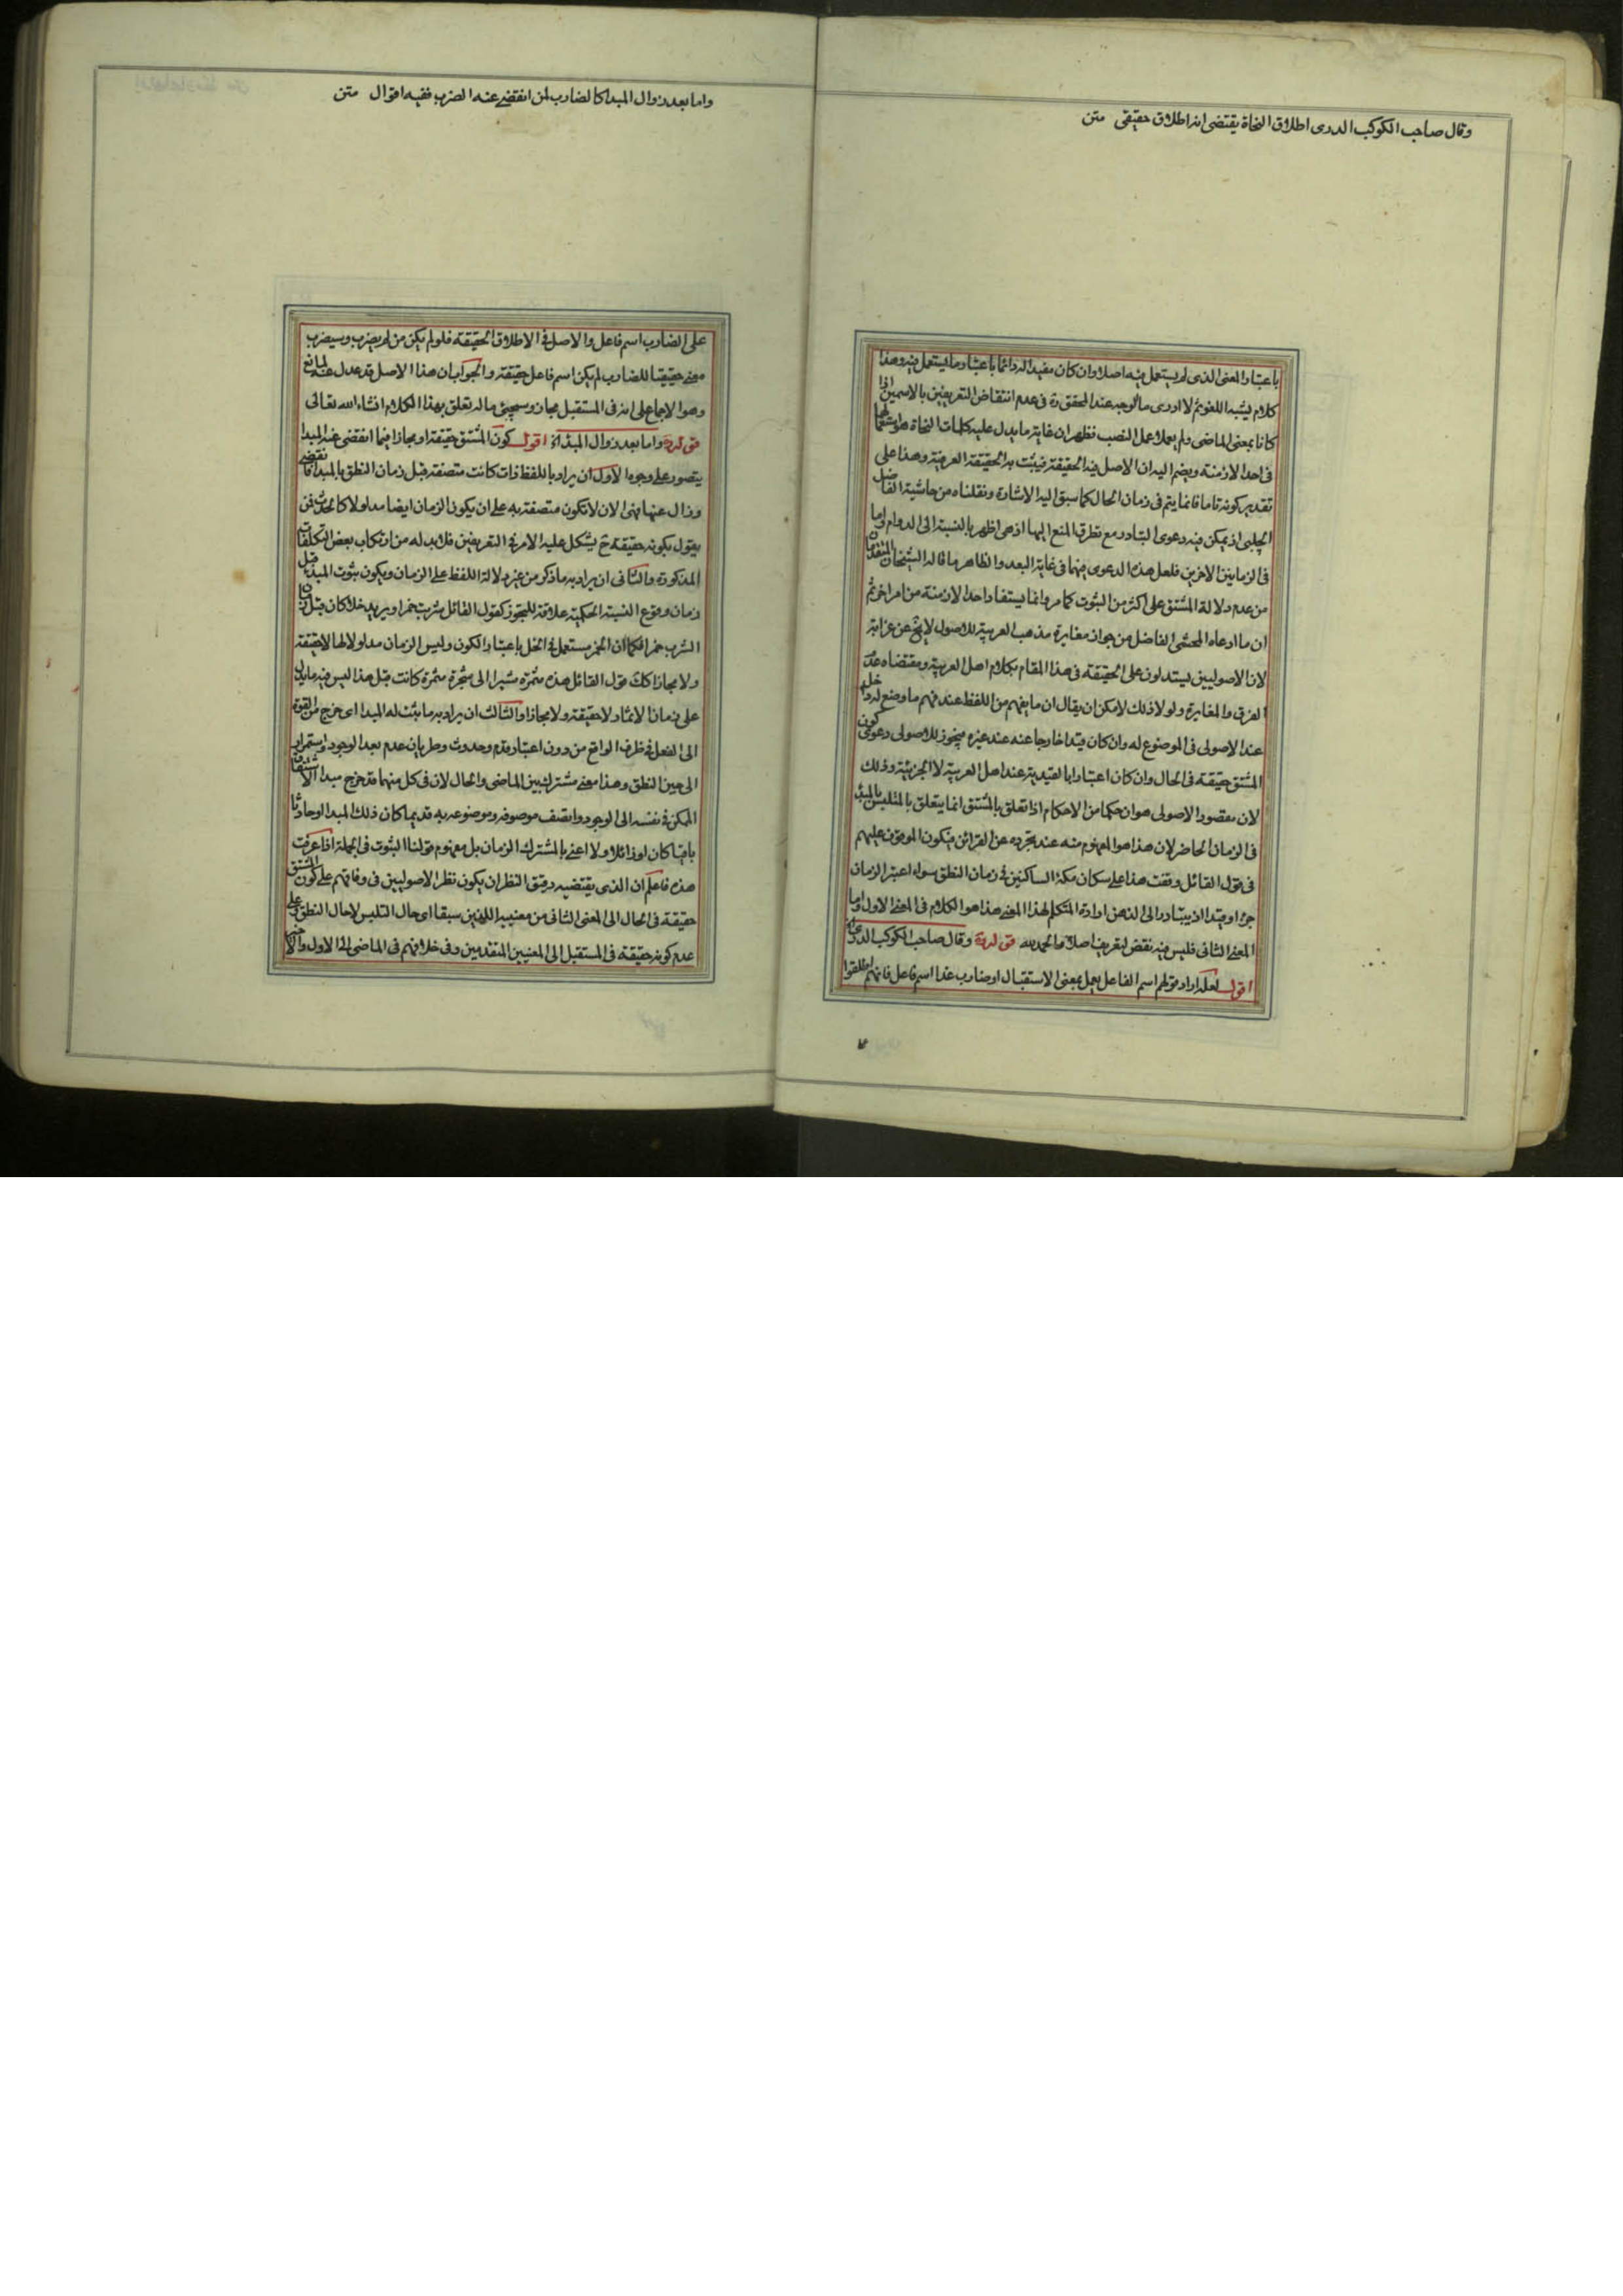 وقال صاحب الكوكب الدرى اطلاق النحاة يقتضى انه اطلاق حقيقى متن
باعتبار المعنى الذى لم يستعمل فيه اصلا وان كان مفيدا له دائما باعتبار ما يستعمل فيه وهذا
كلام يشبه اللغو ثم لا ادرى ما الوجه عند المحقق ره فى عدم انتقاض التعريفين بالاسمين اذا
كانا بمعنى الماضى ولم يعملا عمل النصب فظهر ان غاية ما يدل عليه كلمات النحاة هو استعمالهما
فى احد الازمنة ويضم اليه ان الاصل فيه الحقيقة فيثبت به الحقيقة العرفية وهذا على
تقدير كونه تاما فانما يتم فى زمان الحال كما سبق اليه الاشارة ونقلناه من حاشية الفاضل
الچلبى اذ يمكن فيه دعوى التبادر مع تطرق المنع اليها اذ هى اظهر بالنسبة الى الدوام واما
فى الزمانين الاخرين فلعل هذه الدعوى فيهما فى غاية البعد والظاهر ما قاله الشيخان المتقدمان
من عدم دلالة المشتق على اكثر من الثبوت كما مر وانما يستفاد احد الازمنة من امر اخر ثم
ان ما ادعاه المحشى الفاضل من جواز مغايرة مذهب العربية للاصول لا يخ عن غرابة
لان الاصوليين يستدلون على الحقيقة فى هذا المقام بكلام اهل العربية ومقتضاه عدم
الفرق والمغايرة ولو لا ذلك لامكن ان يقال ان ما يفهم من اللفظ عند فهم ما وضع له داخل
عند الاصولى فى الموضوع له وان كان قيدا خارجا عنه عند غيره فيجوز للاصولى دعوى كون
المشتق حقيقة فى الحال وان كان اعتبارا بالقيدية عند اهل العربية لا الجزئية وذلك
لان مقصود الاصولى هو ان حكما من الاحكام اذا تعلق بالمشتق انما يتعلق بالمتلبس بالمبدء
فى الزمان الحاضر لان هذا هو المفهوم منه عند تجرده عن القرائن فيكون الموقوف عليهم
فى قول القائل وقفت هذا على سكان مكة الساكنين فى زمان النطق سواء اعتبر الزمان
جزءا او قيدا اذ يتبادر الى الذهن ارادة المتكلم لهذا المعنى هذا هو الكلام فى المعنى الاول واما
المعنى الثانى فليس فيه نقض لتعريف اصلا والحمد لله قوله ره وقال صاحب الكوكب الدرى اه
اقول لعله اراد قولهم اسم الفاعل يعمل بمعنى الاستقبال او ضارب غدا اسم فاعل فانهم اطلقوا
واما بعد زوال المبدا كالضارب لمن انقضى عنه الضرب ففيه اقوال متن
على الضارب اسم فاعل والاصل فى الاطلاق الحقيقة فلو لم يكن من لم يضرب وسيضرب
معنى حقيقيا للضارب لم يكن اسم فاعل حقيقة والجواب ان هذا الاصل قد عدل عنه لمانع
وهو الاجماع على انه فى المستقبل مجاز وسيجئ ما له تعلق بهذا الكلام انشاء الله تعالى
قوله ره واما بعد زوال المبدا الخ اقول كون المشتق حقيقة او مجازا فيما انقضى عنه المبدا
يتصور على وجوه الاول ان يراد باللفظ ذات كانت متصفة قبل زمان النطق بالمبدا فانقضى
وزال عنها فهى الان لا تكون متصفة به على ان يكون الزمان ايضا مدلولا كالحدث فمن
يقول بكونه حقيقة ح يشكل عليه الامر فى التعريفين فلا بد له من ارتكاب بعض التكلفات
المذكورة والثانى ان يراد به ما ذكر من غير دلالة اللفظ على الزمان ويكون ثبوت المبدء قبل
زمان وقوع النسبة الحكمية علاقة للتجوز كقول القائل شربت خمرا ويريد خلا كان قبل زمان
الشرب خمرا فكما ان الخمر مستعمل فى الخل باعتبار الكون وليس الزمان مدلولا لها لا حقيقة
ولا مجازا كك قول القائل هذه مثمرة مشيرا الى شجرة مثمرة كانت قبل هذا ليس فيه ما يدل
على زمان الاثمار لا حقيقة ولا مجازا والثالث ان يراد به ما ثبت له المبدا اى خرج من القوة
الى الفعل فى ظرف الواقع من دون اعتبار قدم وحدوث وطريان عدم بعد الوجود واستمراره
الى حين النطق وهذا معنى مشترك بين الماضى والحال لان فى كل منهما قد خرج مبدا الاشتقاق
الممكن فى نفسه الى الوجود واتصف موصوفه وموضوعه به قديما كان ذلك المبدا او حادثا
باقيا كان او زائلا ولا اعنى بالمشترك الزمان بل مفهوم قولنا الثبوت فى الجملة اذا عرفت
هذه فاعلم ان الذى يقتضيه دقيق النظر ان يكون نظر الاصوليين فى وفاقهم على كون المشتق
حقيقة فى الحال الى المعنى الثانى من معنييه اللذين سبقا اى حال التلبس لا حال النطق وعلى
عدم كونه حقيقة فى المستقبل الى المعنيين المتقدمين وفى خلافهم فى الماضى الى الاول والاخير